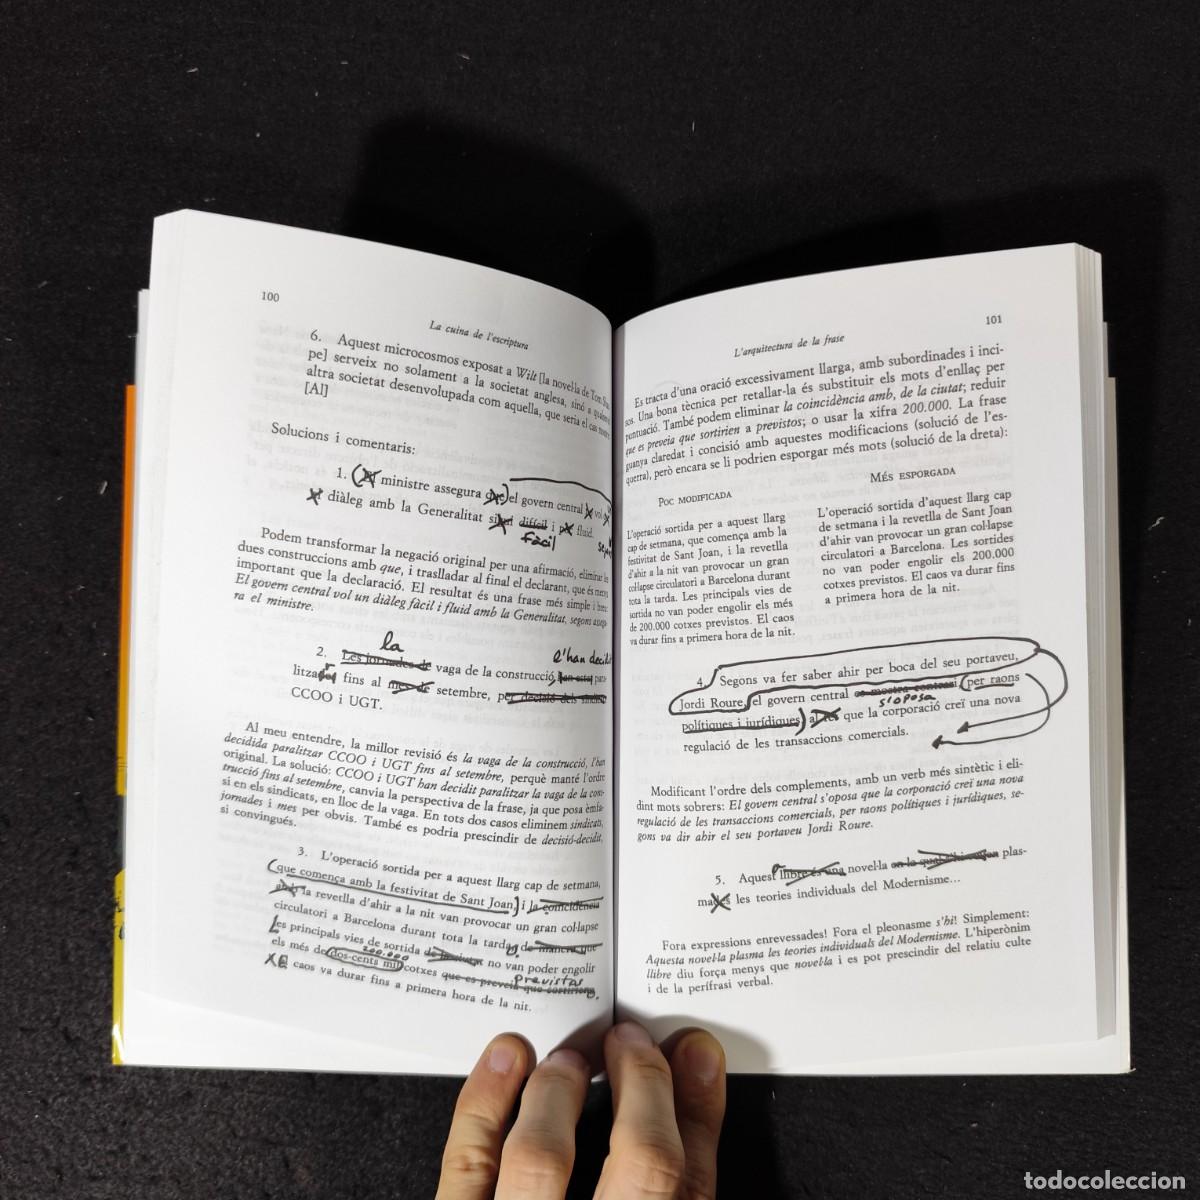 100
La cuina de l'escriptura
6. Aquest microcosmos exposat a Wilt [la novel·la de Tom
pe] serveix no solament a la societat anglesa, sinó a
altra societat desenvolupada com aquella, que seria el cas
[Al]
Solucions i comentaris:
1. (El ministre assegura que) el govern central vol
diàleg amb la Generalitat difícil i fluid.
fàcil
Podem transformar la negació original per una afirmació, eliminar les
dues construccions amb que, i traslladar al final el declarant, que és menys
important que la declaració. El resultat és una frase més simple i breu:
El govern central vol un diàleg fàcil i fluid amb la Generalitat, segons
ra el ministre.
la
l'han decidit
2. Les jornades de vaga de la construcció, han estat
fins al mes de setembre, per decisió dels
CCOO i UGT.
Al meu entendre, la millor revisió és la vaga de la construcció, l'han
decidida paralitzar CCOO i UGT fins al setembre, perquè manté l'ordre
original. La solució: CCOO i UGT han decidit paralitzar la vaga de la cons-
trucció fins al setembre, canvia la perspectiva de la frase, ja que posa èmfa-
si en els sindicats, en lloc de la vaga. En tots dos casos eliminem sindicats,
jornades i mes per obvis. També es podria prescindir de decisió-decidit,
si convingués.
3. L'operació sortida per a aquest llarg cap de setmana,
(que comença amb la festivitat de Sant Joan,) i la coincidència
amb la revetlla d'ahir a la nit van provocar un gran col·lapse
circulatori a Barcelona durant tota la tarda, de manera que
Les principals vies de sortida de la ciutat no van poder engolir
200.000
els més de dos-cents mil cotxes que es preveia que sortirien.
previstos
El caos va durar fins a primera hora de la nit.
101
L'arquitectura de la frase
Es tracta d'una oració excessivament llarga, amb subordinades i inci-
sos. Una bona tècnica per retallar-la és substituir els mots d'enllaç per
puntuació. També podem eliminar la coincidència amb, de la ciutat; reduir
que es preveia que sortirien a previstos; o usar la xifra 200.000. La frase
guanya claredat i concisió amb aquestes modificacions (solució de l'es-
querra), però encara se li podrien esporgar més mots (solució de la dreta):
POC MODIFICADA
L'operació sortida per a aquest llarg
cap de setmana, que comença amb la
festivitat de Sant Joan, i la revetlla
d'ahir a la nit van provocar un gran
col·lapse circulatori a Barcelona durant
tota la tarda. Les principals vies de
sortida no van poder engolir els més
de 200.000 cotxes previstos. El caos
va durar fins a primera hora de la nit.
MÉS ESPORGADA
L'operació sortida d'aquest llarg cap
de setmana i la revetlla de Sant Joan
d'ahir van provocar un gran col·lapse
circulatori a Barcelona. Les sortides
no van poder engolir els 200.000
cotxes previstos. El caos va durar fins
a primera hora de la nit.
4. Segons va fer saber ahir per boca del seu portaveu,
Jordi Roure, el govern central es mostra contrari, (per raons
s'oposa
polítiques i jurídiques,) a que la corporació creï una nova
regulació de les transaccions comercials.
Modificant l'ordre dels complements, amb un verb més sintètic i eli-
dint mots sobrers: El govern central s'oposa que la corporació creï una nova
regulació de les transaccions comercials, per raons polítiques i jurídiques, se-
gons va dir ahir el seu portaveu Jordi Roure.
5. Aquest llibre és una novel·la en la qual s'hi plas-
les teories individuals del Modernisme...
Fora expressions enrevessades! Fora el pleonasme s'hi! Simplement:
Aquesta novel·la plasma les teories individuals del Modernisme. L'hiperònim
llibre diu força menys que novel·la i es pot prescindir del relatiu culte
i de la perífrasi verbal.
todocoleccion